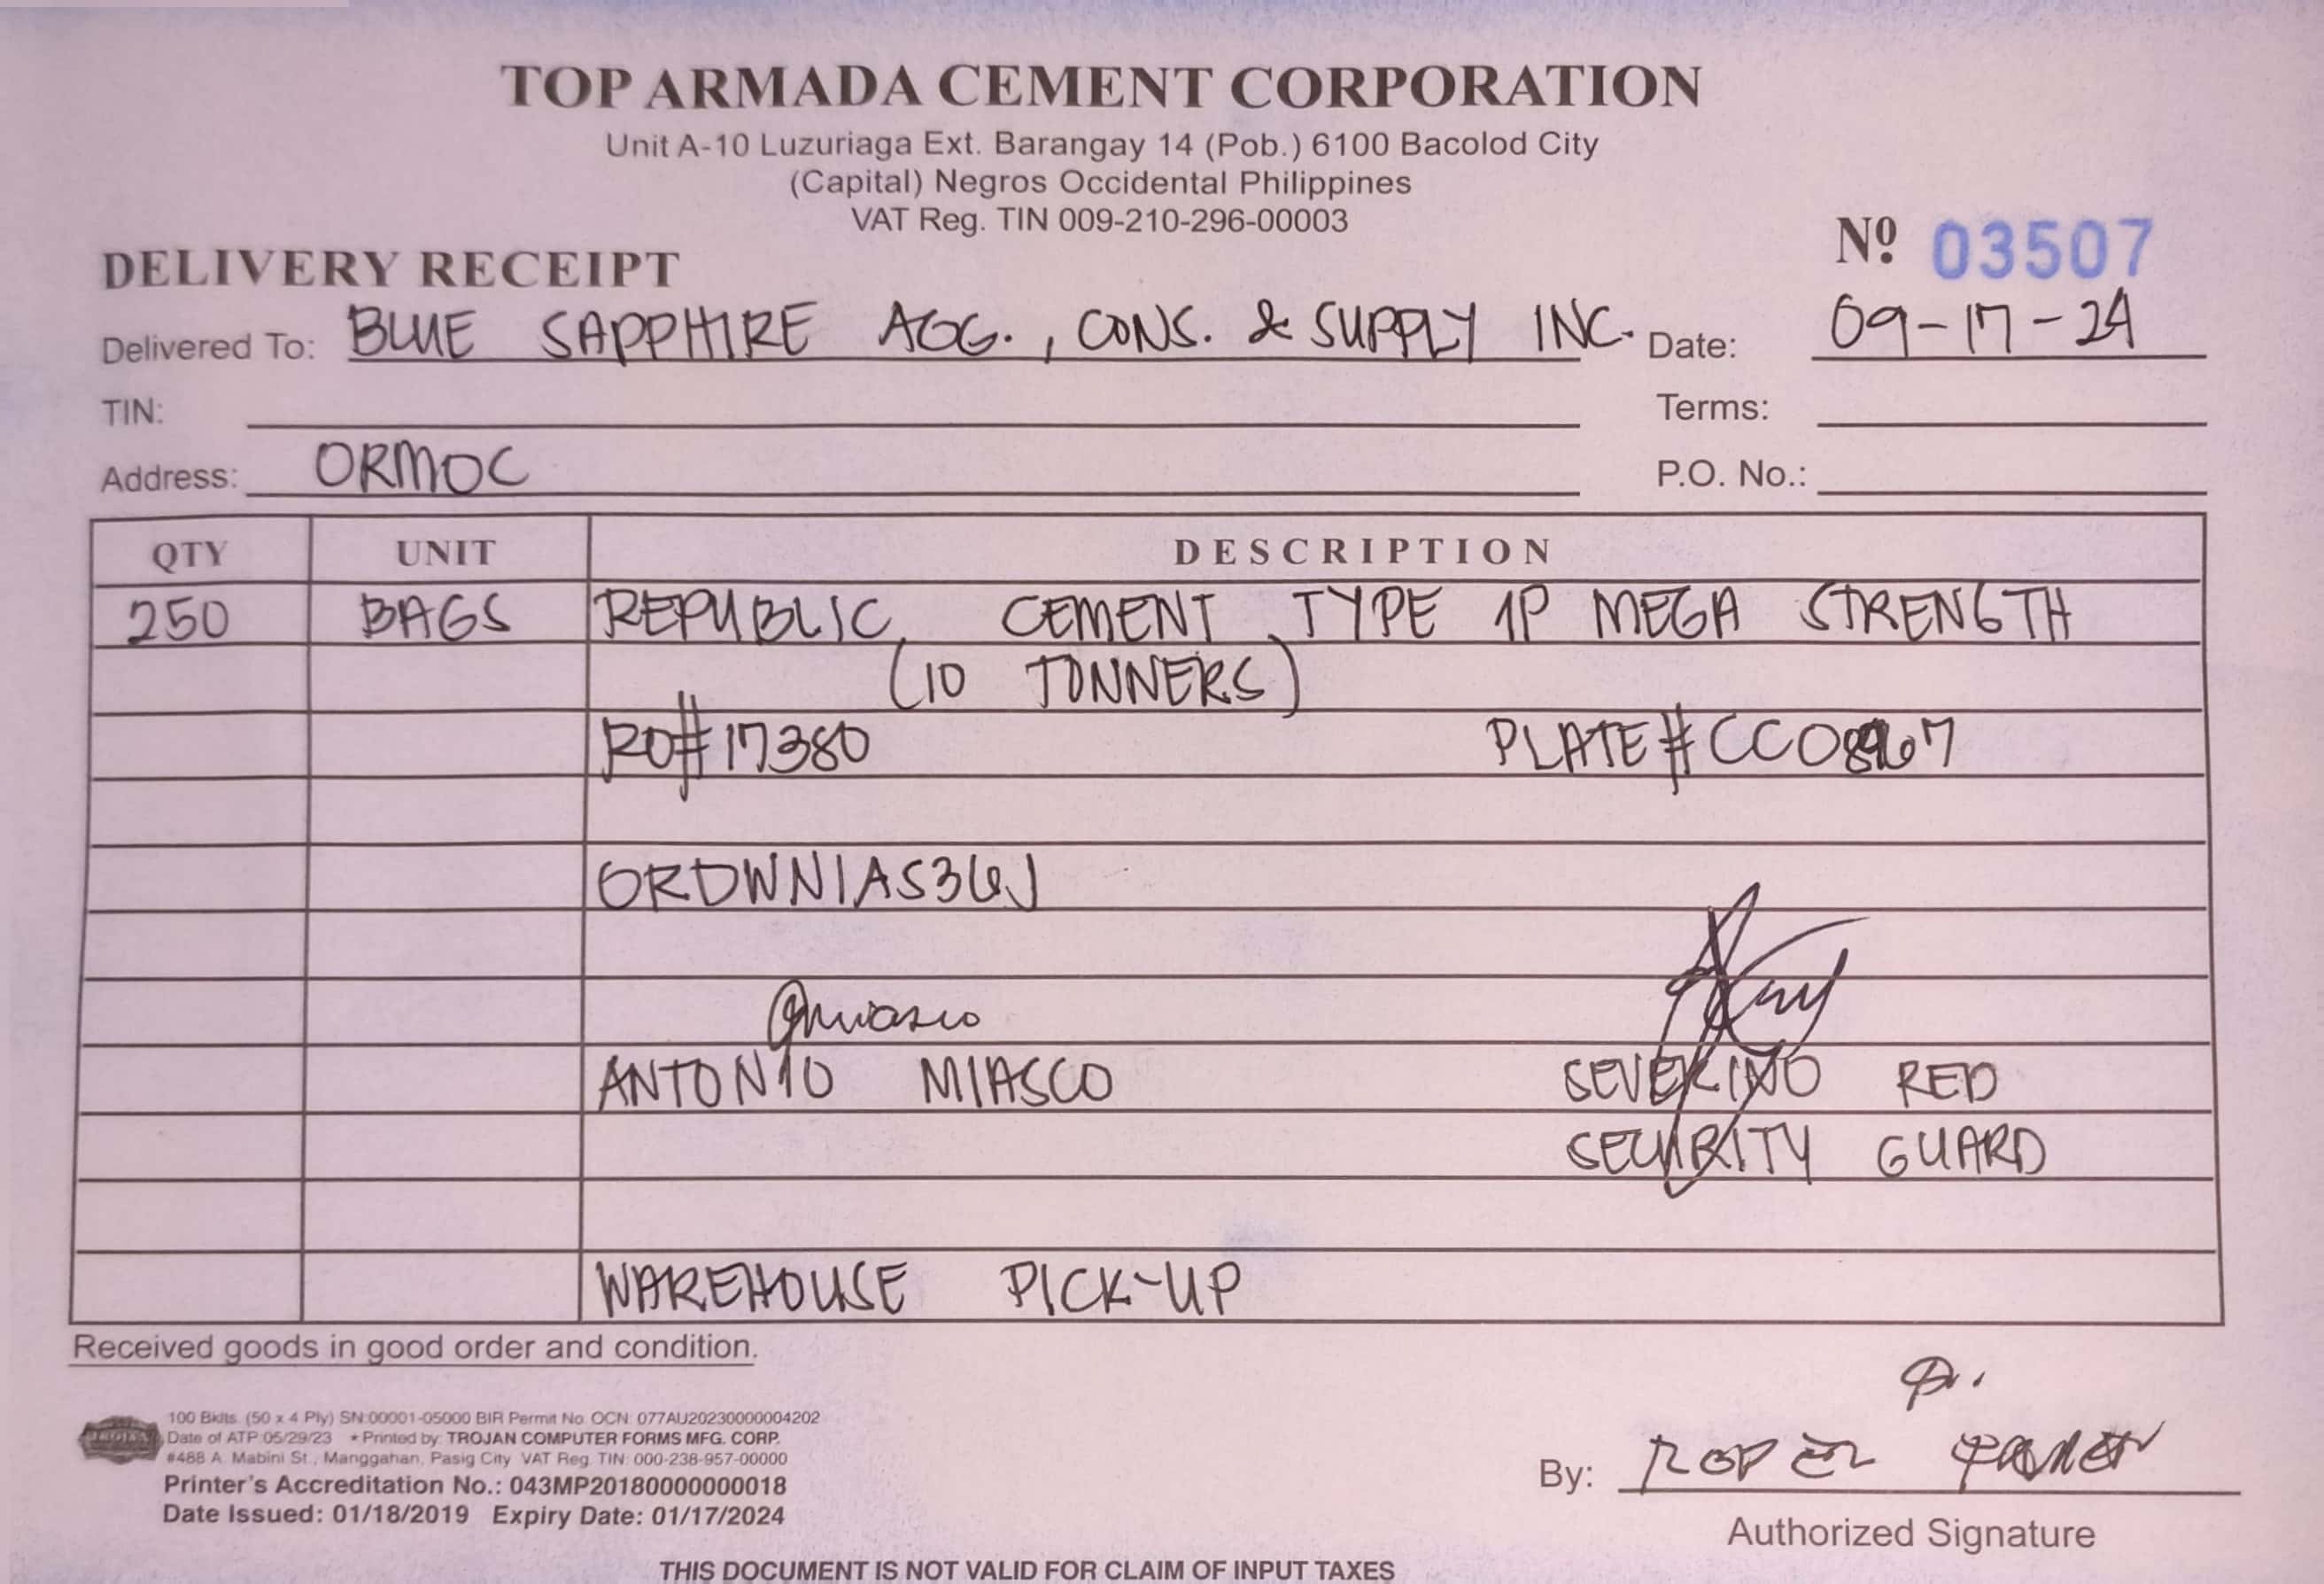 TOP ARMADA CEMENT CORPORATION
Unit A-10 Luzuriaga Ext. Barangay 14 (Pob.) 6100 Bacolod City
(Capital) Negros Occidental Philippines
VAT Reg. TIN 009-210-296-00003
Nº 03507
DELIVERY RECEIPT
Delivered To: BLUE SAPPHIRE AGG., CONS. & SUPPLY INC. Date: 09-17-24
TIN: Terms:
Address: ORMOC P.O. No.:
QTY UNIT DESCRIPTION
250 BAGS REPUBLIC CEMENT TYPE 1P MEGA STRENGTH
(10 TONNERS)
RO#17380 PLATE#
ORDWNIAS36J
ANTONIO MIASCO SEVERINO RED
SECURITY GUARD
WAREHOUSE PICK-UP
Received goods in good order and condition.
100 Bklts. (50 x 4 Ply) SN:00001-05000 BIR Permit No. OCN: 077AU20230000004202
Date of ATP:05/29/23 * Printed by: TROJAN COMPUTER FORMS MFG. CORP.
#488 A. Mabini St., Manggahan, Pasig City VAT Reg. TIN: 000-238-957-00000
Printer's Accreditation No.: 043MP20180000000018
Date Issued: 01/18/2019 Expiry Date: 01/17/2024
By:
Authorized Signature
THIS DOCUMENT IS NOT VALID FOR CLAIM OF INPUT TAXES